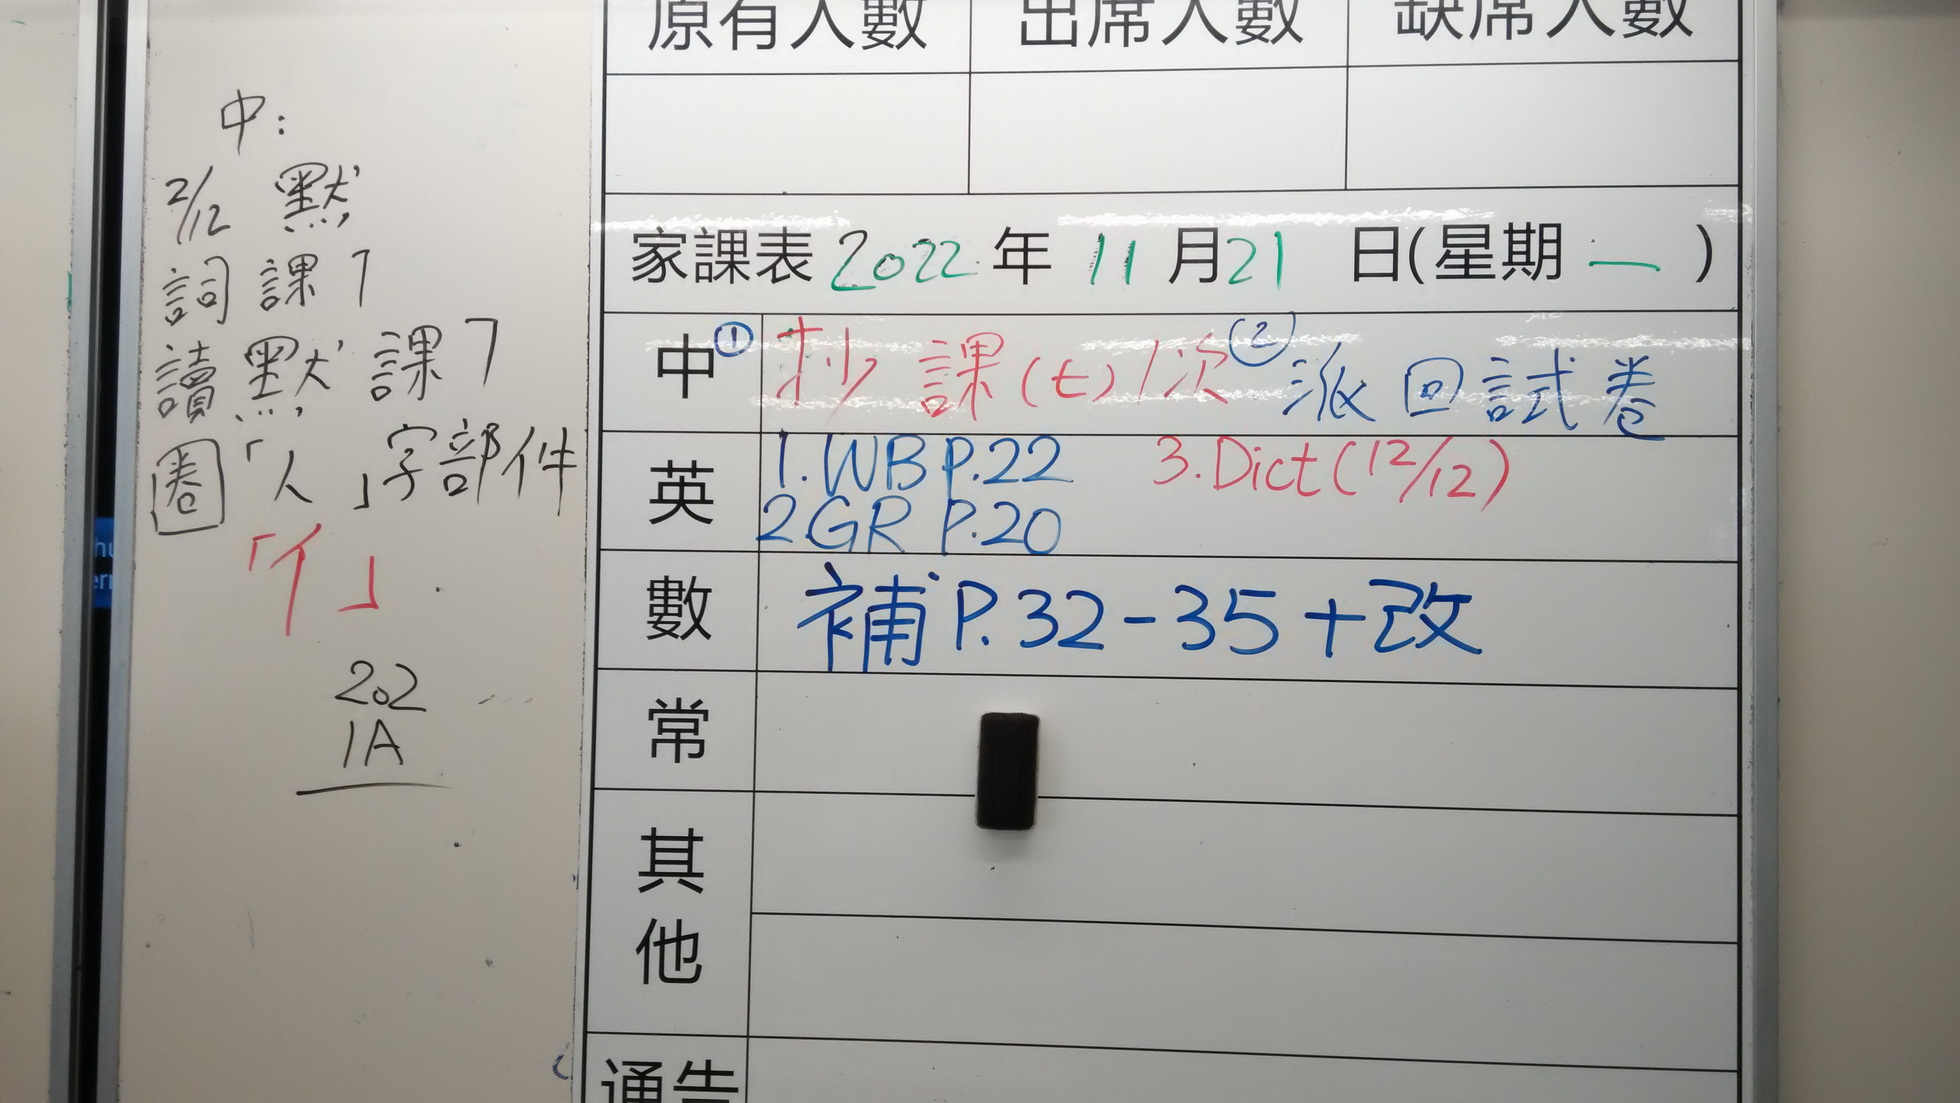 中:
2/12 默
詞 課7
讀默 課7
圈「人」字部件
「亻」
202
1A
原有人數 出席人數 缺席人數
家課表 2022 年 11 月 21 日(星期 一 )
中 ① 抄課(七)1次 ② 派回試卷
英 1. WB P.22 3. Dict (12/12)
2. GR P.20
數 補 P. 32-35+改
常
其他
通告